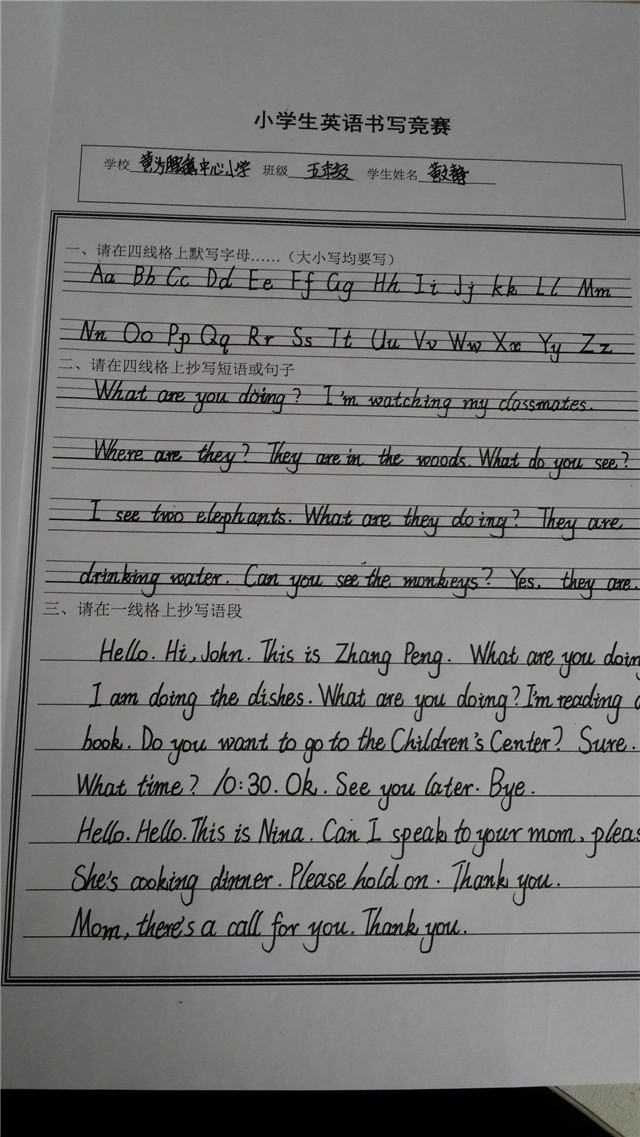 小学生英语书写竞赛
学校 黄沙腰镇中心小学 班级 五年级 学生姓名
一、请在四线格上默写字母……（大小写均要写）
Aa Bb Cc Dd Ee Ff Gg Hh Ii Jj kk Ll Mm
Nn Oo Pp Qq Rr Ss Tt Uu Vv Ww Xx Yy Zz
二、请在四线格上抄写短语或句子
What are you doing? I'm watching my classmates.
Where are they? They are in the woods. What do you see?
I see two elephants. What are they doing? They are
drinking water. Can you see the monkeys? Yes, they are.
三、请在一线格上抄写语段
Hello. Hi, John. This is Zhang Peng. What are you doin
I am doing the dishes. What are you doing? I'm reading a
book. Do you want to go to the Children's Center? Sure.
What time? 10:30. Ok. See you later. Bye.
Hello. Hello. This is Nina. Can I speak to your mom, pleas
She's cooking dinner. Please hold on. Thank you.
Mom, there's a call for you. Thank you.